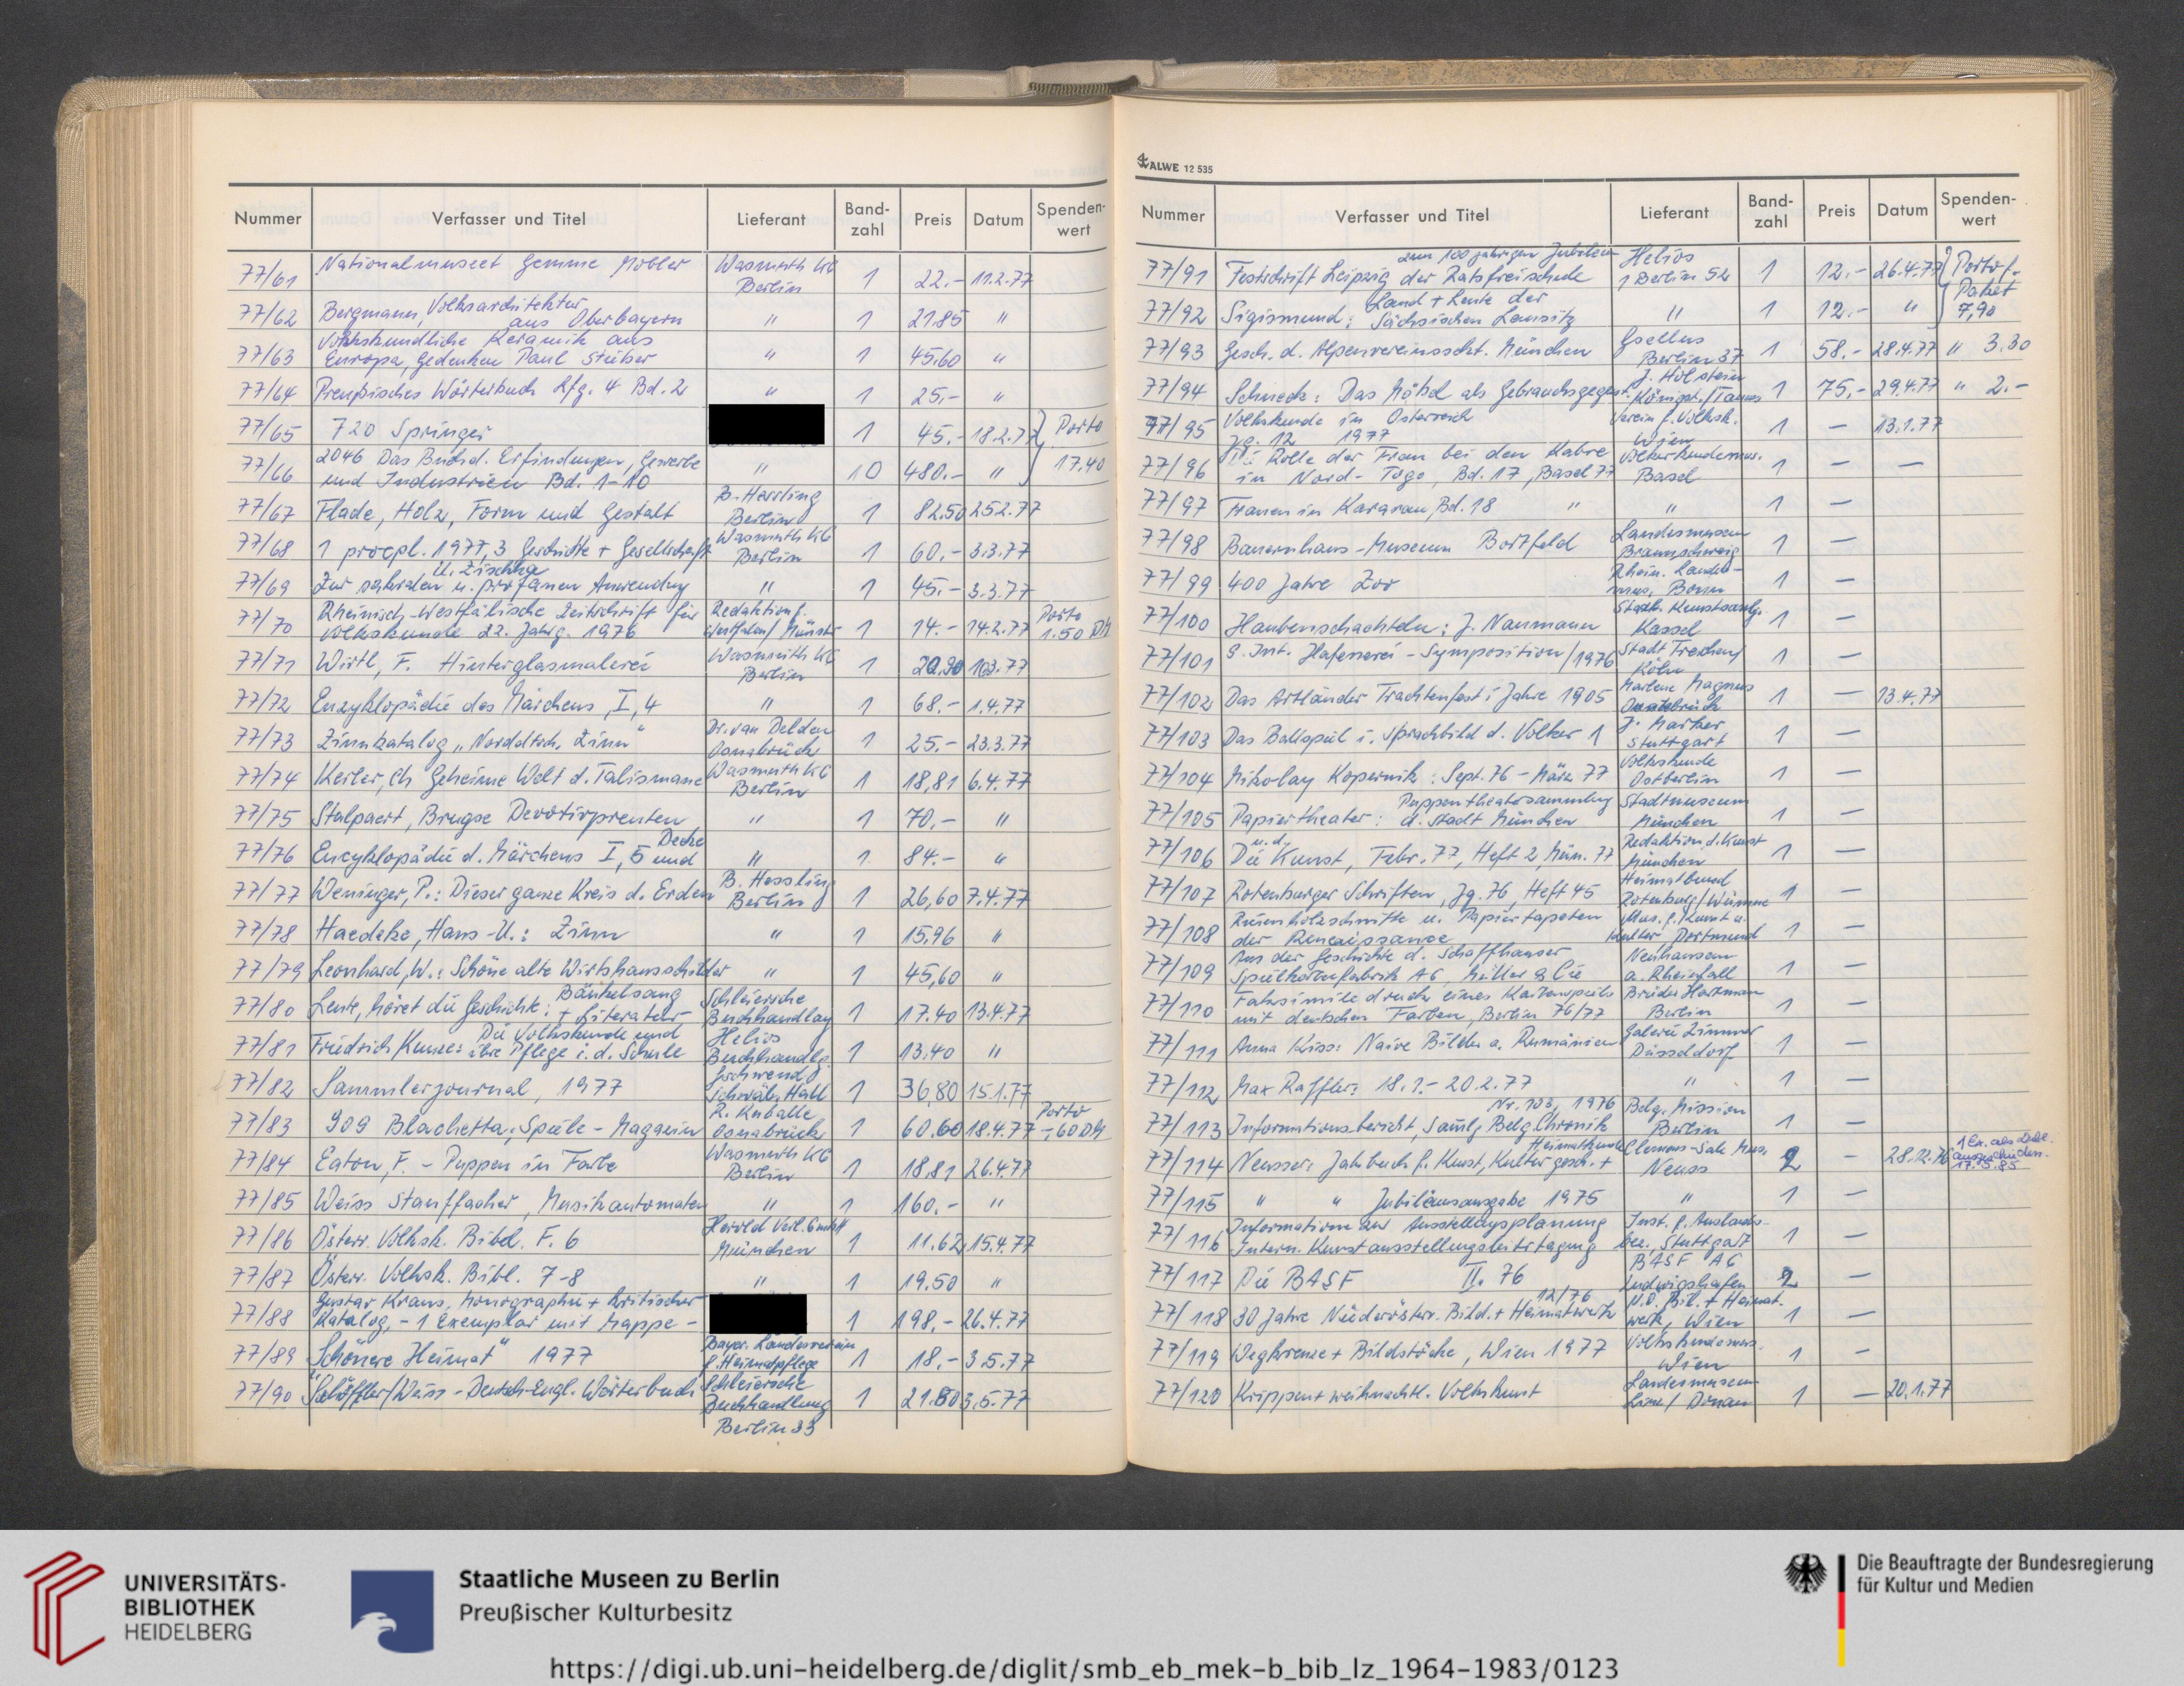 Nummer Verfasser und Titel Lieferant Band-zahl Preis Datum Spenden-wert
77/61 Nationalmuseet Gemme Møbler Wasmuth KG Berlin 1 22.- 11.2.77
77/62 Bergmann, Volksarchitektur aus Oberbayern " 1 21.85 "
77/63 Volkskundliche Keramik aus Europa, Gedenken Paul Stieber " 1 45.60 "
77/64 Preußisches Wörterbuch Lfg. 4 Bd. 2 " 1 25,- "
77/65 720 Springer 1 45.- 18.2.77 Porto
77/66 2046 Das Buch d. Erfindungen, Gewerbe und Industrien Bd. 1-10 " 10 480.- " 17.40
77/67 Flade, Holz, Form und Gestalt B. Hessling Berlin 1 82.50 25.2.77
77/68 1 procpl. 1977,3 Geschichte + Gesellschaft Wasmuth KG Berlin 1 60.- 3.3.77
77/69 Zur sakralen u. profanen Anwendung " 1 45.- 3.3.77
77/70 Rheinisch-Westfälische Zeitschrift für Volkskunde 22. Jahrg. 1976 Redaktion f. Westfalen/Münster 1 14.- 14.2.77 Porto 1.50 DM
77/71 Wirtl, F. Hinterglasmalerei Wasmuth KG Berlin 1 77
77/72 Enzyklopädie des Märchens, I, 4 " 1 68.- 1.4.77
77/73 Zinnkatalog „Norddtsch. Zinn" Dr. van Delden Osnabrück 1 25.- 23.3.77
77/74 Kerler, Ch Geheime Welt d. Talismane Wasmuth KG Berlin 1 18,81 6.4.77
77/75 Stalpaert, Brugse Devotieprenten " 1 70,- "
77/76 Encyklopädie d. Märchens I, 5 und Decke " 1 84.- "
77/77 Weninger, P.: Dieser ganze Kreis d. Erden B. Hessling Berlin 1 26,60 7.4.77
77/78 Haedeke, Hans-U.: Zinn " 1 15.96 "
77/79 Leonhard, W.: Schöne alte Wirtshausschilder " 1 45,60 "
77/80 Leute, höret die Geschichte: Bänkelsang + Literatur Schleiersche Buchhandlg 1 17.40 13.4.77
77/81 Friedrich Kunze: Die Volkskunde und ihre Pflege i. d. Schule Helios Buchhandlg. 1 13.40 "
77/82 Sammlerjournal, 1977 Gschwend Schwäb. Hall 1 36,80 15.1.77
77/83 909 Blachetta: Spiele-Magazin R. Kuballe Osnabrück 1 60.60 18.4.77 Porto -,60 DM
77/84 Eaton, F. - Puppen in Farbe Wasmuth KG Berlin 1 18.81 26.4.77
77/85 Weiss Stauffacher, Musikautomaten " 1 160.- "
77/86 Österr. Volksk. Bibl. F. 6 Herold Verl. GmbH München 1 11.62 15.4.77
77/87 Österr. Volksk. Bibl. 7-8 " 1 19.50 "
77/88 Gustav Kraus, Monographie + kritischer Katalog, - 1 Exemplar mit Mappe - 1 198,- 26.4.77
77/89 „Schönere Heimat" 1977 Bayer. Landesverein f. Heimatpflege 1 18.- 3.5.77
77/90 Schöffler/Weiss - Deutsch-Engl. Wörterbuch Schleiersche Buchhandlung Berlin 33 1 21.80 3.5.77
ALWE 12 535
Nummer Verfasser und Titel Lieferant Band-zahl Preis Datum Spenden-wert
77/91 Festschrift Leipzig zum 100 jährigen Jubiläum der Ratsfreischule Helios 1 Berlin 52 1 12.- 26.4.77 Porto f. Paket
77/92 Sigismund: Land + Leute der Sächsischen Lausitz " 1 12.- " 7,90
77/93 Gesch. d. Alpenvereinssekt. München Gsellius Berlin 37 1 58.- 28.4.77 " 3.30
77/94 Schneck: Das Möbel als Gebrauchsgegenst. J. Holstein Königst./Taunus 1 75,- 29.4.77 " 2.-
77/95 Volkskunde in Österreich Jg. 12 1977 Verein f. Volksk. Wien 1 - 13.1.77
77/96 Die Rolle der Frau bei den Kabre in Nord-Togo, Bd. 17, Basel 77 Völkerkundemus. Basel 1 - -
77/97 Frauen in Kararau, Bd. 18 " " 1 -
77/98 Bauernhaus-Museum Bortfeld Landesmuseum Braunschweig 1 -
77/99 400 Jahre Zoo Rhein. Landesmus. Bonn 1 -
77/100 Haubenschachteln: J. Naumann Staatl. Kunstsamlg. Kassel 1 -
77/101 Int. Hafnerei-Symposition/1976 Stadt Frechen/Köln 1 -
77/102 Das Artländer Trachtenfest i. Jahre 1905 Marlene Magnus Osnabrück 1 - 13.4.77
77/103 Das Ballspiel i. Sprachbild d. Völker 1 J. Marker Stuttgart 1 -
77/104 Mikolay Kopernik: Sept. 76 - März 77 Volkskunde Ostberlin 1 -
77/105 Papiertheater: Puppentheatersammlung d. Stadt München Stadtmuseum München 1 -
77/106 Die Kunst u. d., Febr. 77, Heft 2 Mün. 77 Redaktion d. Kunst München 1 -
77/107 Rotenburger Schriften, Jg. 76, Heft 45 Heimatbund Rotenburg/Wümme 1 -
77/108 Riesenholzschnitte u. Papiertapeten der Renaissance Mus. f. Kunst u. Kultur Dortmund 1 -
77/109 Aus der Geschichte d. Schaffhauser Spielkartenfabrik AG, Müller & Cie Neuhausen a. Rheinfall 1 -
77/110 Faksimiledruck eines Kartenspiels mit deutschen Farben, Berlin 76/77 Brüder Hartmann Berlin 1 -
77/111 Anna Kiss: Naive Bilder a. Rumänien Galerie Zimmer Düsseldorf 1 -
77/112 Max Raffler: 18.1.- 20.2.77 " 1 -
77/113 Informationsbericht, Samlg Belg. Chronik Nr. 103, 1976 Belg. Mission Berlin 1 -
77/114 Neusser Jahrbuch f. Kunst, Kulturgesch. + Heimatkunde Clemens-Sels Mus. Neuss 2 - 28.12.76 1 Ex. als Dubl. ausgeschieden. 17.5.85
77/115 " " Jubiläumsausgabe 1975 " 1 -
77/116 Information zur Ausstellungsplanung Intern. Kunstausstellungsleitertagung Inst. f. Auslandsbez. Stuttgart 1 -
77/117 Die BASF II. 76 BASF AG Ludwigshafen 2 -
77/118 30 Jahre Niederösterr. Bild. + Heimatwerk 12/76 N.Ö. Bil. + Heimatwerk, Wien 1 -
77/119 Wegkreuze + Bildstöcke, Wien 1977 Volkskundemus. Wien 1 -
77/120 Krippen + weihnachtl. Volkskunst Landesmuseum Linz/Donau 1 - 20.1.77
UNIVERSITÄTS-
BIBLIOTHEK
HEIDELBERG
Staatliche Museen zu Berlin
Preußischer Kulturbesitz
Die Beauftragte der Bundesregierung
für Kultur und Medien
https://digi.ub.uni-heidelberg.de/diglit/smb_eb_mek-b_bib_lz_1964-1983/0123